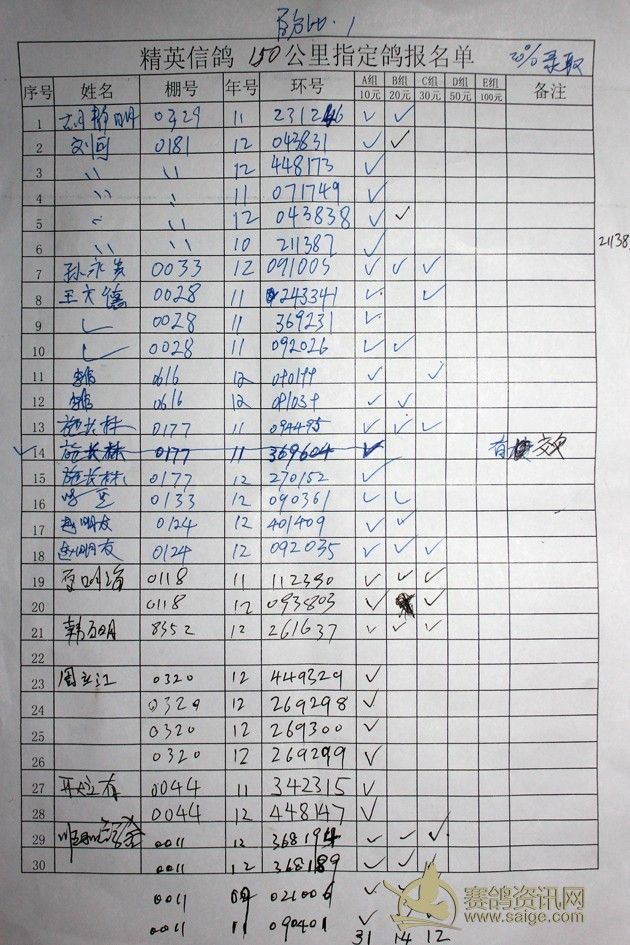 精英信鸽 150 公里指定鸽报名单 20% 录取
序号 姓名 棚号 年号 环号 A组 10元 B组 20元 C组 30元 D组 50元 E组 100元 备注
1 0329 11 231246 ✓ ✓
2 刘刚 0181 12 043831 ✓ ✓
3 〃 〃 12 448173 ✓
4 〃 〃 11 071749 ✓
5 〃 〃 12 043838 ✓ ✓
6 〃 〃 10 211387 ✓ 21138
7 孙永 0033 12 091005 ✓ ✓ ✓
8 王文德 0028 11 243341 ✓ ✓
9 0028 11 369231 ✓
10 0028 11 092026 ✓ ✓
11 0616 12 ✓ ✓
12 0616 12 ✓ ✓
13 施长林 0177 11 094495 ✓ ✓ ✓
✓ 14 施长林 0177 11 369604 ✓ 有效
15 施长林 0177 12 270152 ✓
16 0133 12 090361 ✓ ✓
17 赵明友 0124 12 401409 ✓ ✓
18 赵明友 0124 12 092035 ✓ ✓ ✓
19 0118 11 112390 ✓ ✓ ✓
20 0118 12 093803 ✓ ✓
21 韩明 8352 12 261637 ✓ ✓ ✓
22
23 周立江 0320 12 449329 ✓
24 0320 12 269298 ✓
25 0320 12 269300 ✓
26 0320 12 269299 ✓
27 0044 11 342315 ✓
28 0044 12 448147 ✓
29 0011 12 368194 ✓ ✓ ✓
30 0011 12 368189 ✓ ✓ ✓
0011 09 021006 ✓
0011 11 090401 ✓
31 14 12
赛鸽资讯网
www.saige.com